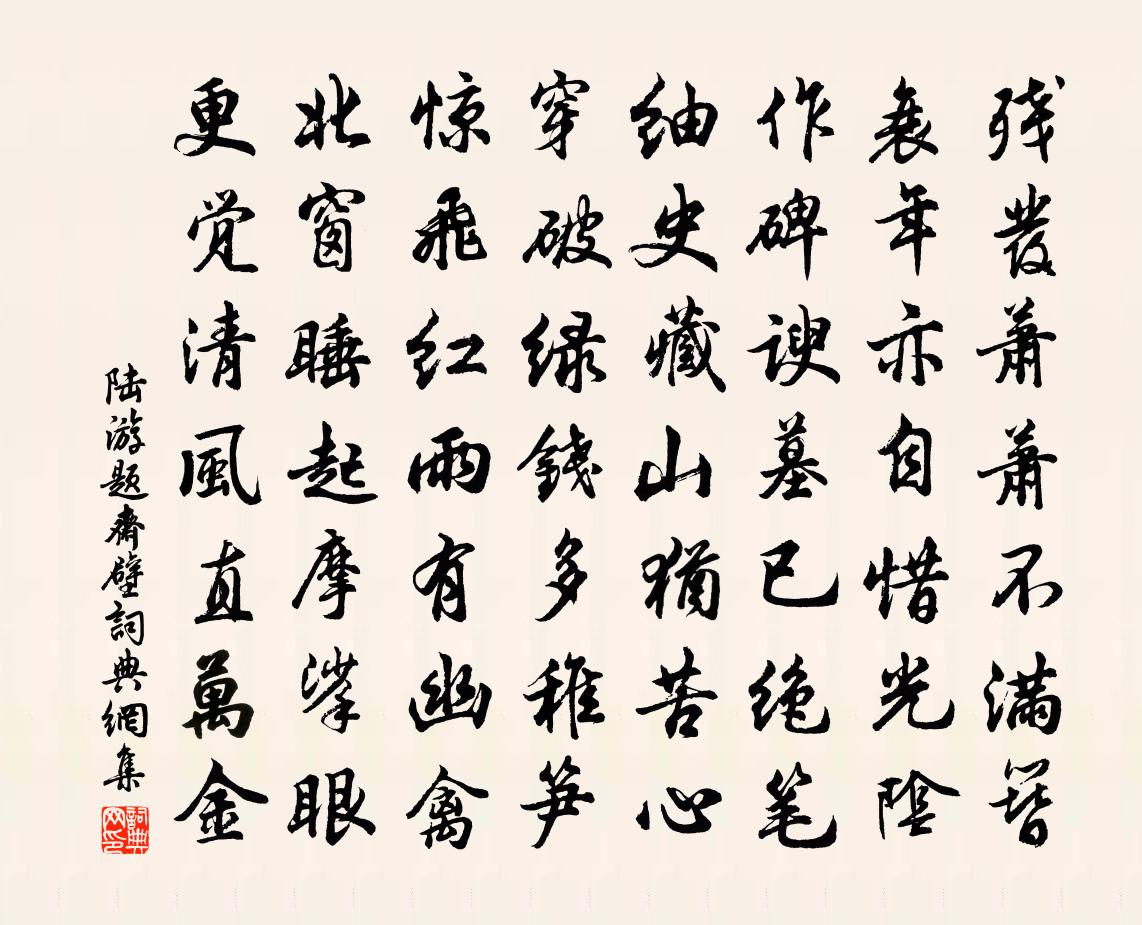 残发萧萧不满簪
衰年亦自惜光陰
作碑諛墓已绝笔
紬史藏山犹苦心
穿破绿錢多稚笋
惊飛红雨有幽禽
北窗睡起摩挲眼
更觉清風直萬金
陆游题齋壁詞典網集
詞典网印